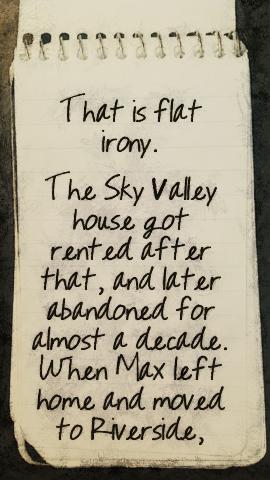 That is flat
irony.
The Sky Valley
house got
rented after
that, and later
abandoned for
almost a decade.
When Max left
home and moved
to Riverside,